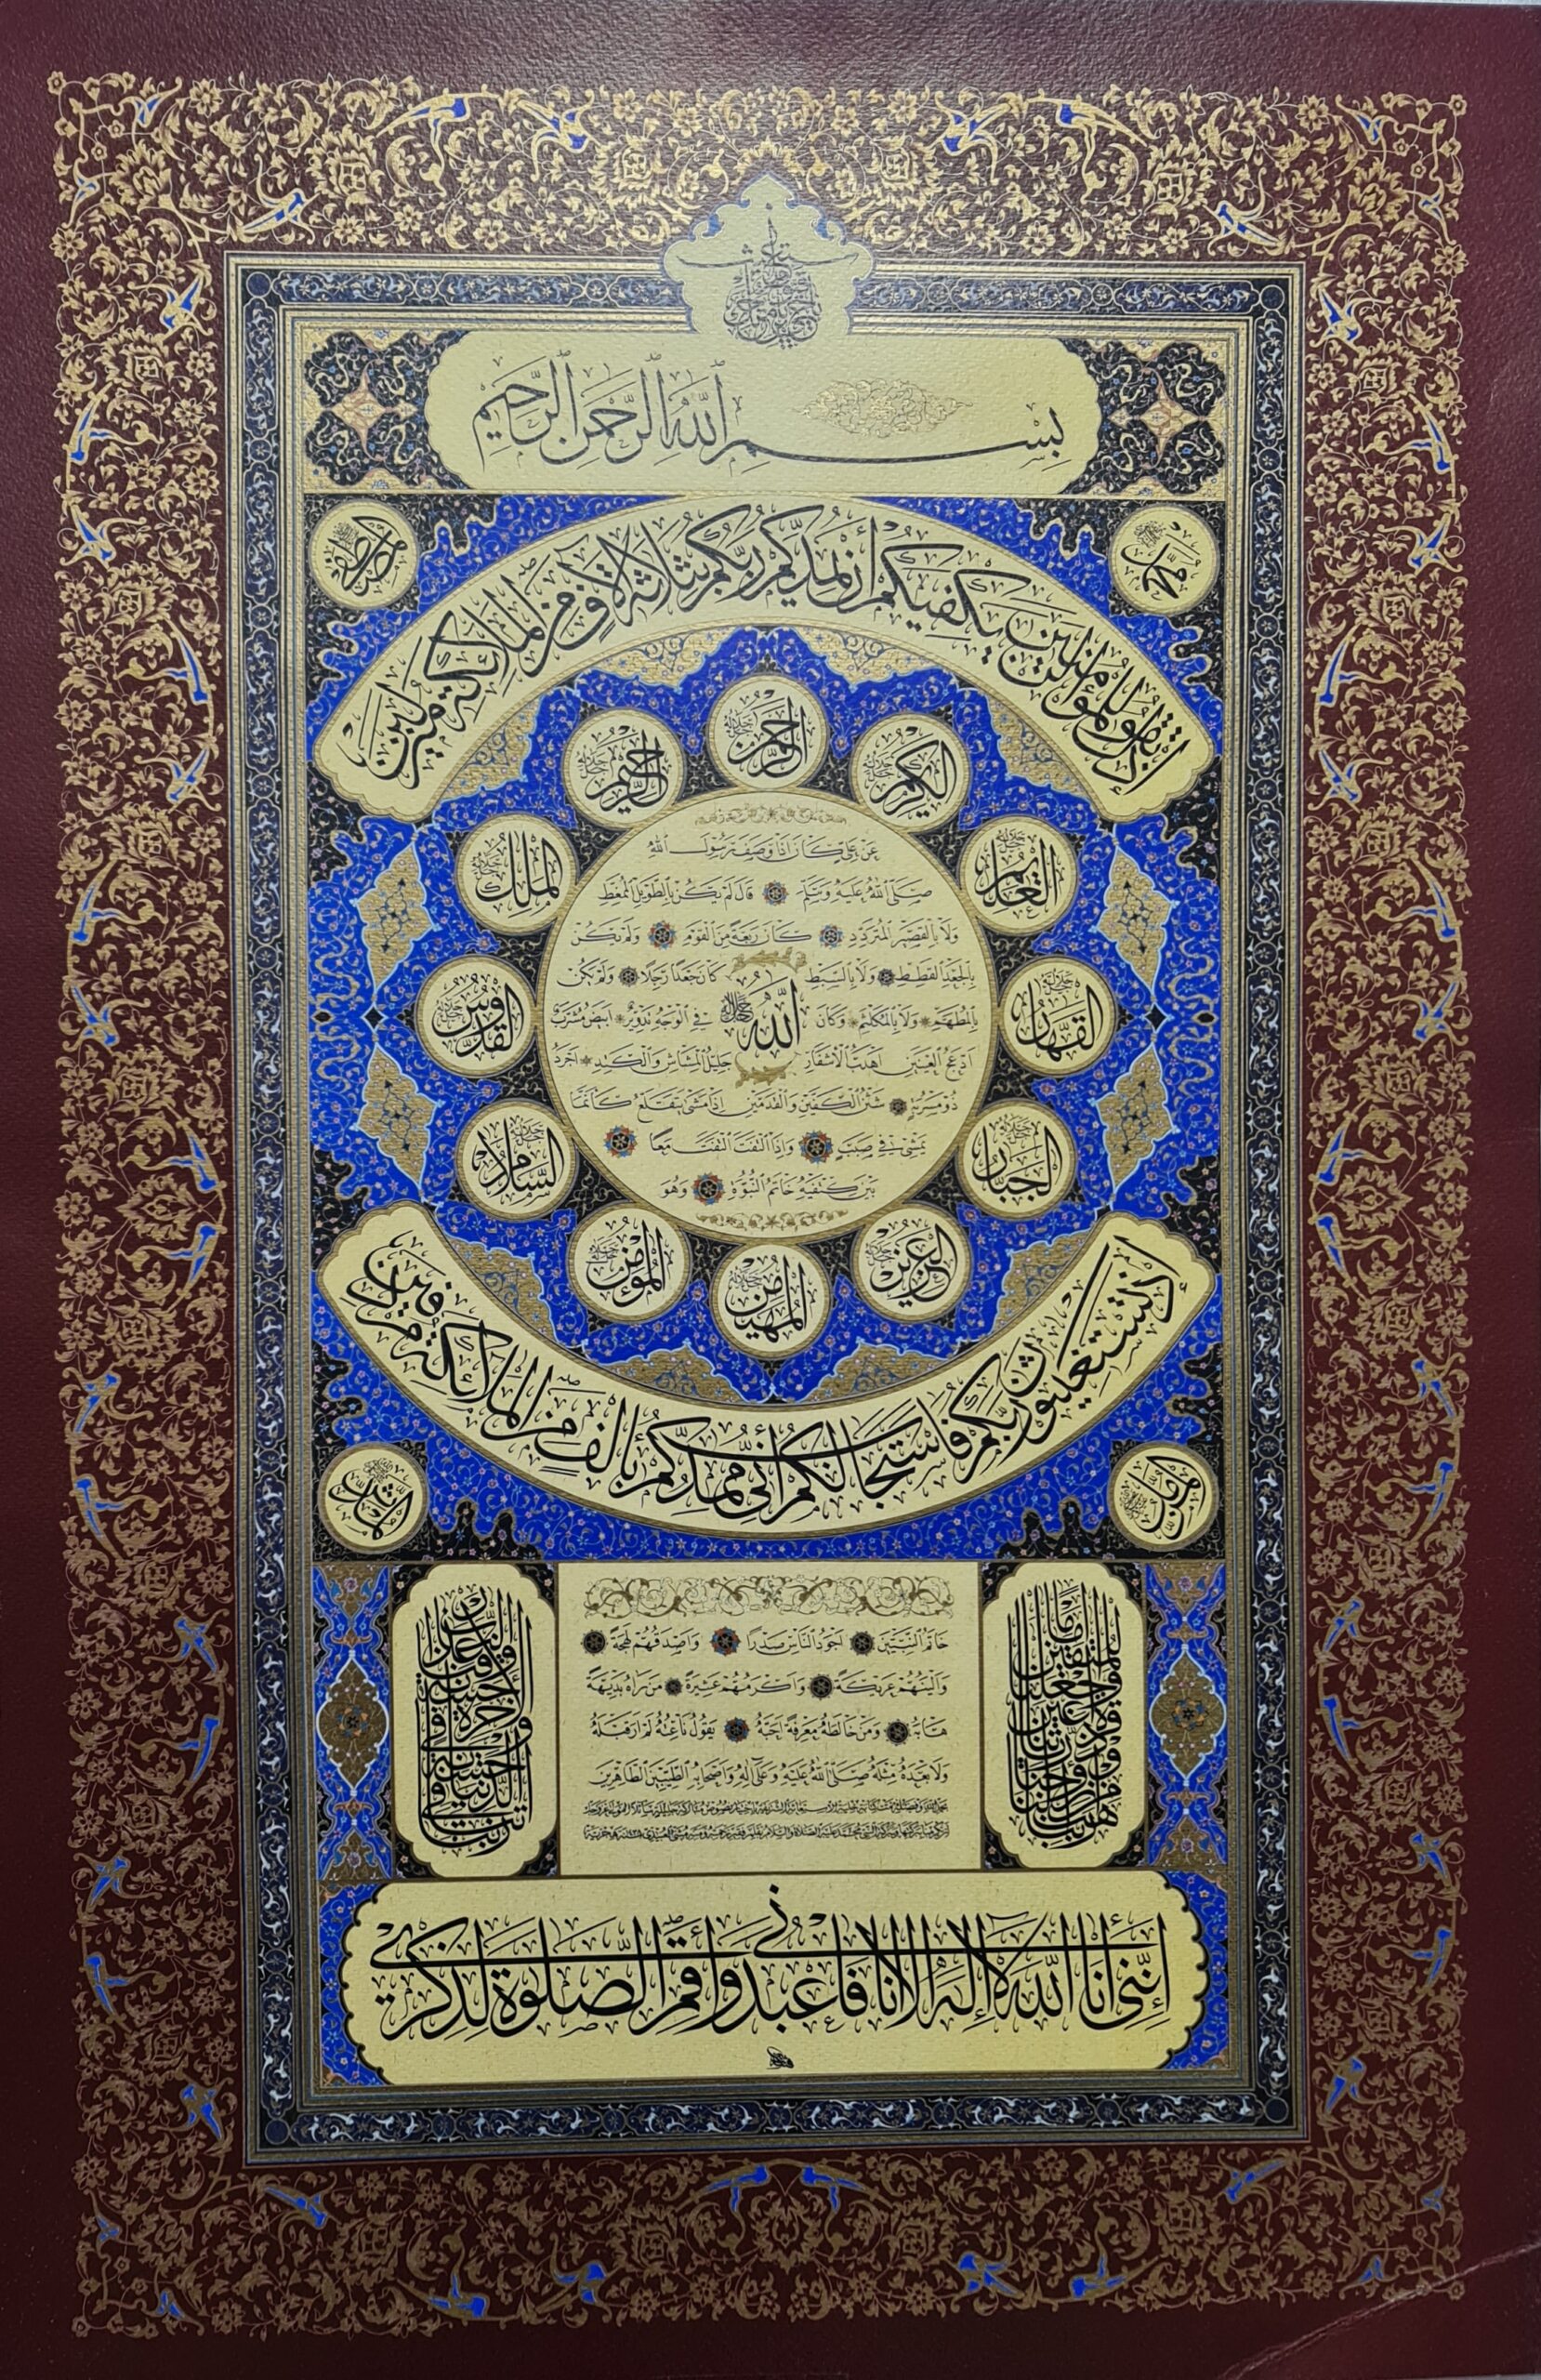 بِسْمِ اللَّهِ الرَّحْمَنِ الرَّحِيمِ
محمد
المصطفى
إذ تقول للمؤمنين ألن يكفيكم أن يمدكم ربكم بثلاثة آلاف من الملائكة منزلين
الرحمن جل جلاله
الكريم جل جلاله
الرحيم جل جلاله
العليم جل جلاله
الملك جل جلاله
القهار جل جلاله
القدوس جل جلاله
الجبار جل جلاله
السلام جل جلاله
العزيز جل جلاله
المؤمن جل جلاله
المهيمن جل جلاله
عن علي كان إذا وصف رسول الله
صلى الله عليه وسلم قال لم يكن بالطويل الممغط
ولا بالقصير المتردد كان ربعة من القوم ولم يكن
بالجعد القطط ولا بالسبط كان جعدا رجلا ولم يكن
بالمطهم ولا بالمكلثم وكان في الوجه تدوير أبيض مشرب
الله جل جلاله
أدعج العينين أهدب الأشفار جليل المشاش والكتد أجرد
ذو مسربة شثن الكفين والقدمين إذا مشى يتقلع كأنما
يمشي في صبب وإذا التفت التفت معا
بين كتفيه خاتم النبوة وهو
إذ تستغيثون ربكم فاستجاب لكم أني ممدكم بألف من الملائكة مردفين
خاتم النبيين أجود الناس صدرا وأصدقهم لهجة
وألينهم عريكة وأكرمهم عشيرة من رآه بديهة
هابه ومن خالطه معرفة أحبه يقول ناعته لم أر قبله
ولا بعده مثله صلى الله عليه وعلى آله وأصحابه الطيبين الطاهرين
ربنا هب لنا من أزواجنا وذرياتنا قرة أعين واجعلنا للمتقين إماما
ربنا آتنا في الدنيا حسنة وفي الآخرة حسنة وقنا عذاب النار
إنني أنا الله لا إله إلا أنا فاعبدني وأقم الصلوة لذكري